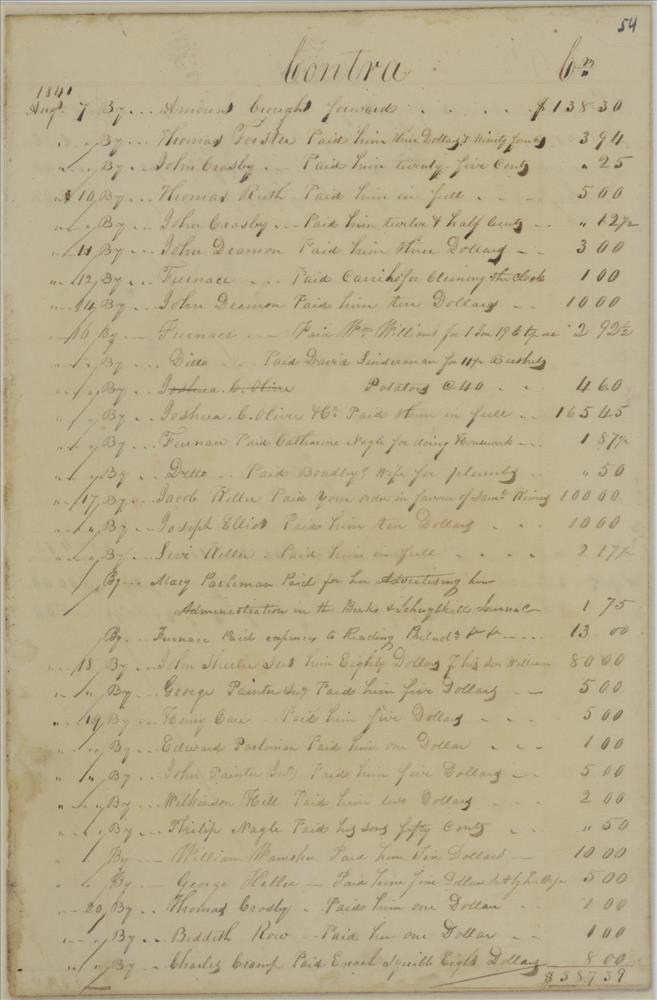 54
Contra Cr
1841
Augt 7 By ... Amount brought forward . . . . $138 30
" " By ... Thomas Forster Paid him three Dollars & Ninety four cts 3 94
" " By ... John Crosby ... Paid him twenty five Cents " 25
" 10 By ... Thomas Ruth Paid him in full . . . 5 00
" " By ... John Crosby ... Paid him twelve & half Cents .. " 12½
" 11 By ... John Deamon Paid him three Dollars .. 3 00
" 12 By ... Furnace ... Paid for Cleaning the Clock 1 00
" 14 By ... John Deamon Paid him ten Dollars .. 10 00
" 16 By ... Furnace ... Paid Wm Williams for 1 19 2 92½
" " By .. Ditto ... Paid David Linderman for 11½ Bushels
" " By .. Joshua C. Olive Potatoes @ 40 . . 4 60
" " By .. Joshua C. Oliver & Co Paid them in full .. 165 45
" " By .. Furnace Paid Catharine Nagle for doing Housework ... 1 87½
" " By .. Ditto .. Paid Boadleys Wife for plumbs .. " 50
" 17 By .. Jacob Keller Paid Your order in favour of Saml 100 00
" " By ... Joseph Elliot Paid him ten Dollars . . . 10 00
" " By ... Levi Keller . Paid him in full . . . . 2 17½
By ... Mary Pashman Paid for her Advertising her
Administration in the Berks & Schuylkill Journal 1 75
By .. Furnace Paid expences to Reading Philada .... 13 00
" 18 By .. John Sheeler Sent him Eighty Dollars p his son William 80 00
" " By ... George Painter Paid him five Dollars .. 5 00
" 19 By ... Henry Care .. Paid him five Dollars . . . 5 00
" " By ... Edward Pashman Paid him one Dollar . . . 1 00
" " By ... John Painter Paid him five Dollars ... 5 00
" " By .. Wilkinson Hill Paid him two Dollars . . . 2 00
" " By .. Philip Nagle Paid his sons fifty Cents . . " 50
" By ... William Paid him Ten Dollars — 10 00
" " By — George Heller — Paid him five Dollars 5 00
" 20 By .. Thomas Crosby . Paid him one Dollar . 1 00
" " By .. Beddith Row — Paid her one Dollar . . 1 00
" " By .. Charles Cramp Paid Enoch Squible Eight Dollars 8 00
$587 39